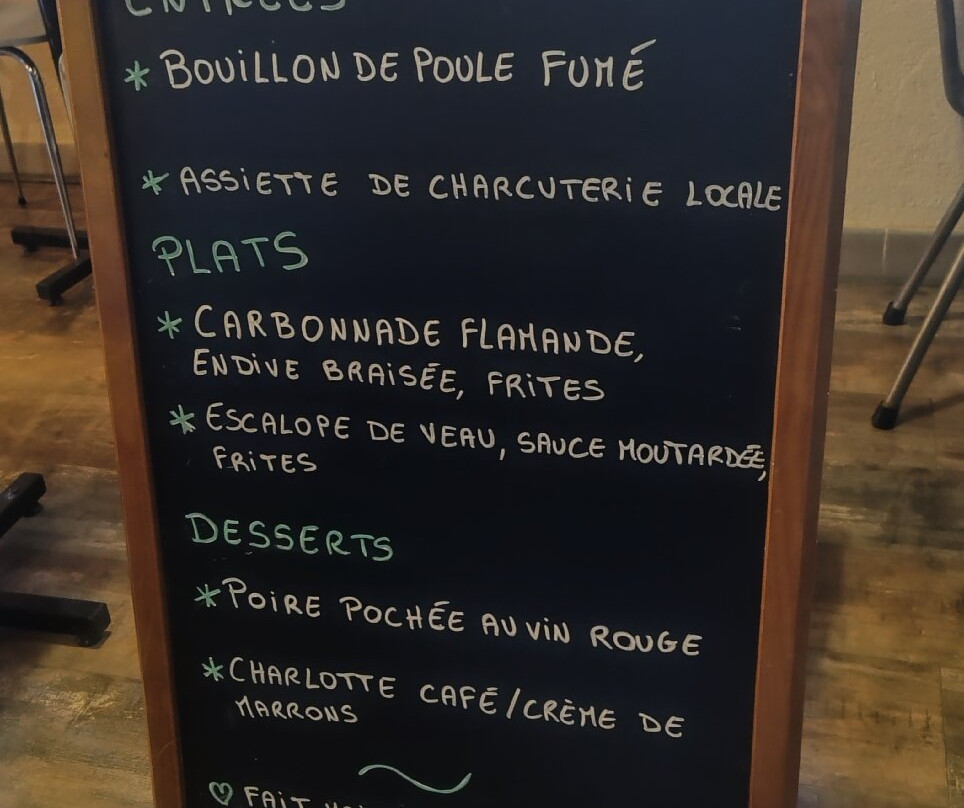 ENTRÉES
* BOUILLON DE POULE FUMÉ
* ASSIETTE DE CHARCUTERIE LOCALE
PLATS
* CARBONNADE FLAMANDE,
ENDIVE BRAISÉE, FRITES
* ESCALOPE DE VEAU, SAUCE MOUTARDÉE,
FRITES
DESSERTS
* POIRE POCHÉE AU VIN ROUGE
* CHARLOTTE CAFÉ/CRÈME DE
MARRONS
♡ FAIT